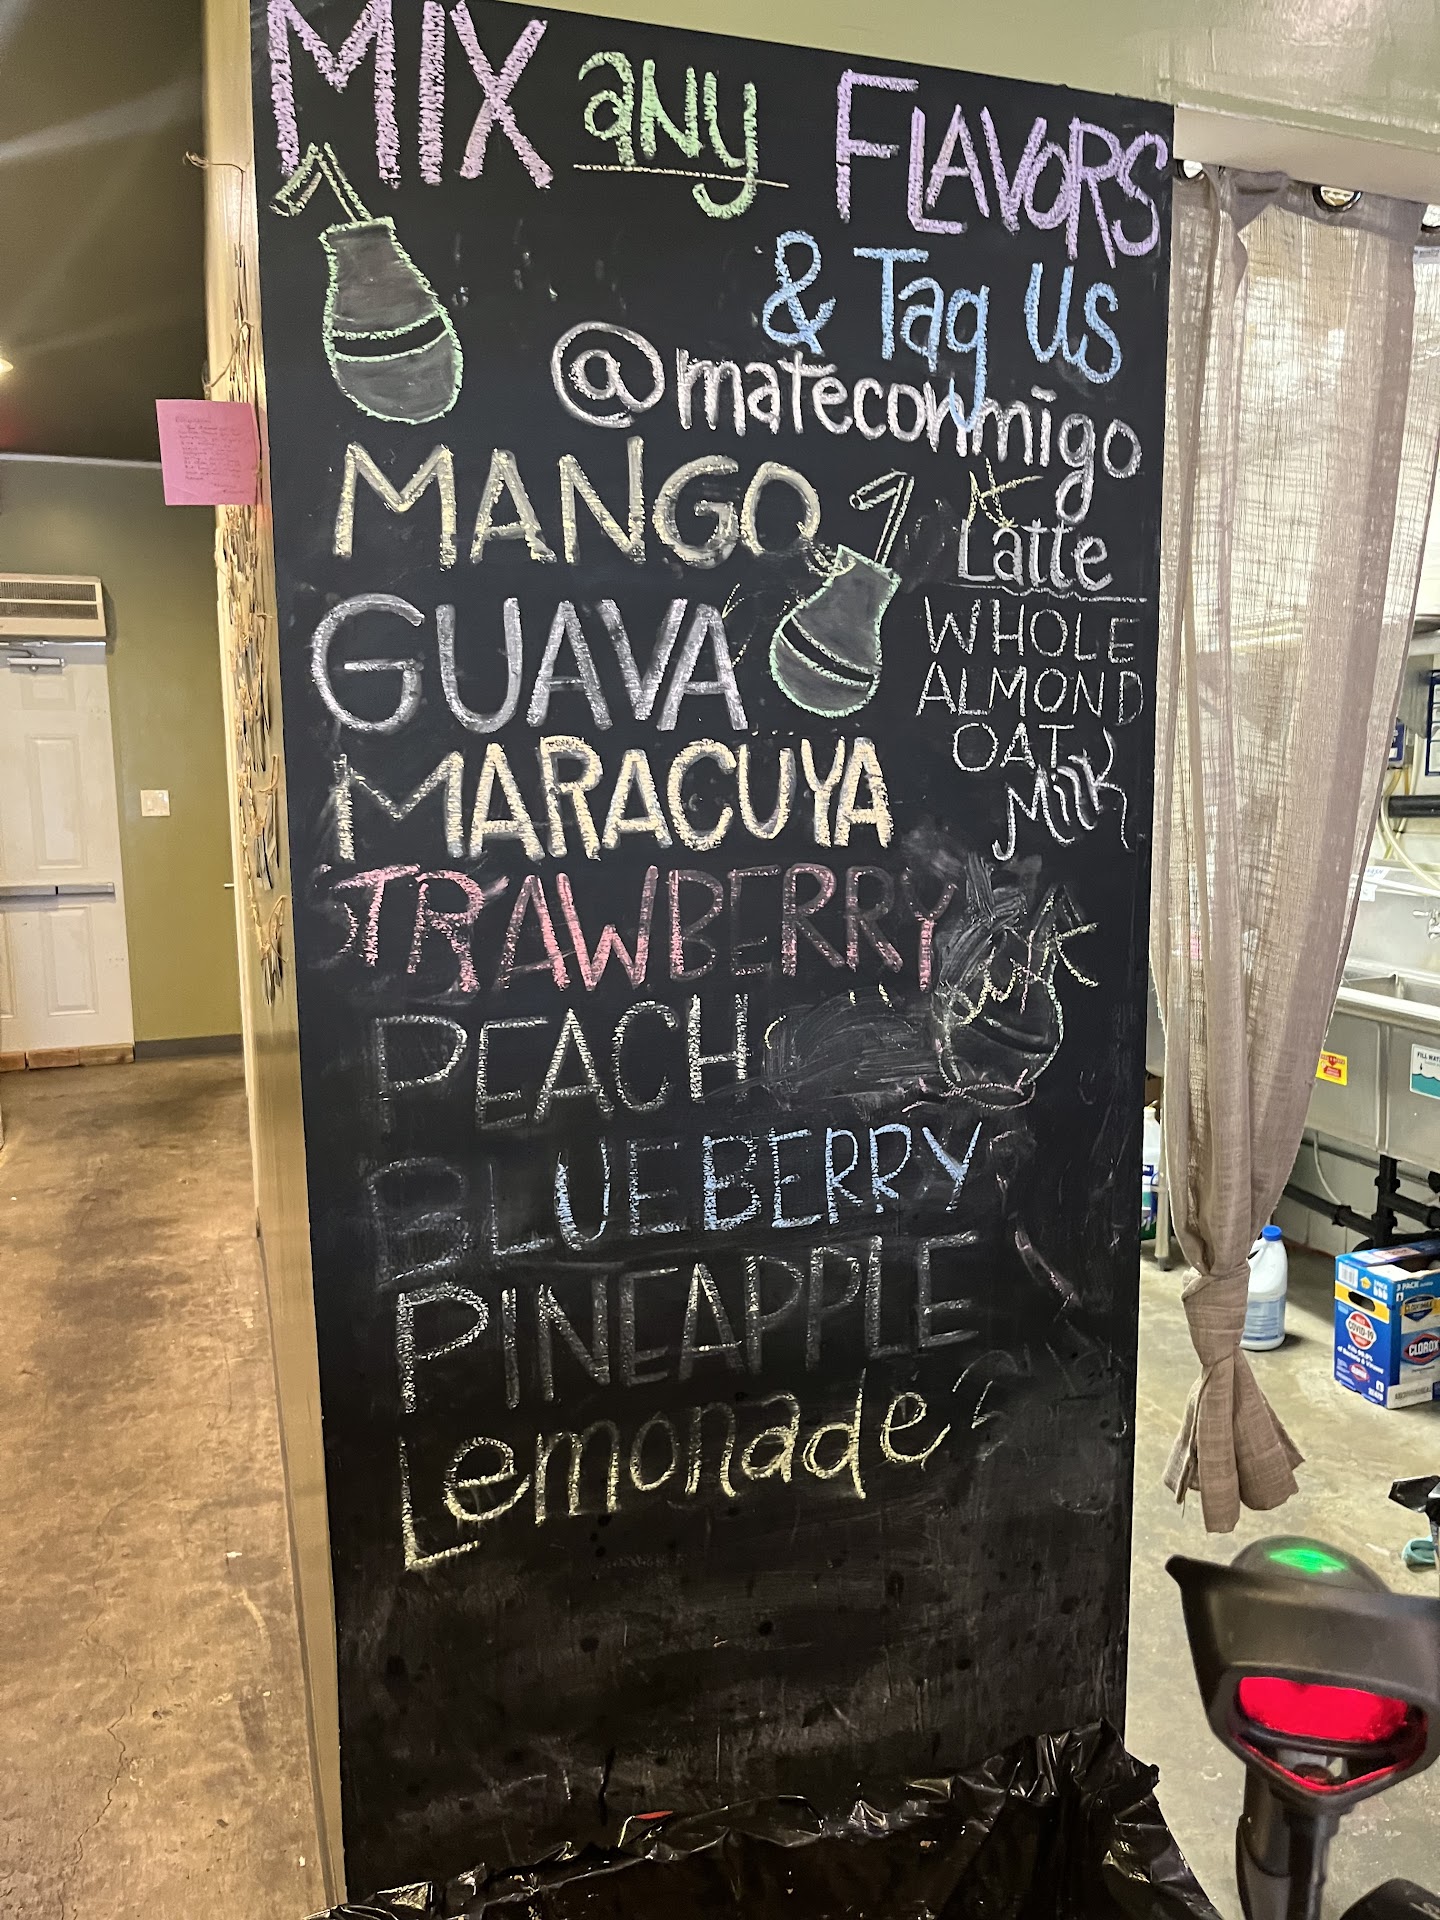 MIX any FLAVORS
& Tag Us
@mateconmigo
MANGO
GUAVA
MARACUYA
TRAWBERRY
PEACH
BLUEBERRY
PINEAPPLE
Lemonade
Latte
WHOLE
ALMOND
OAT
Milk
FILL WATE
COVID-19
CLOROX